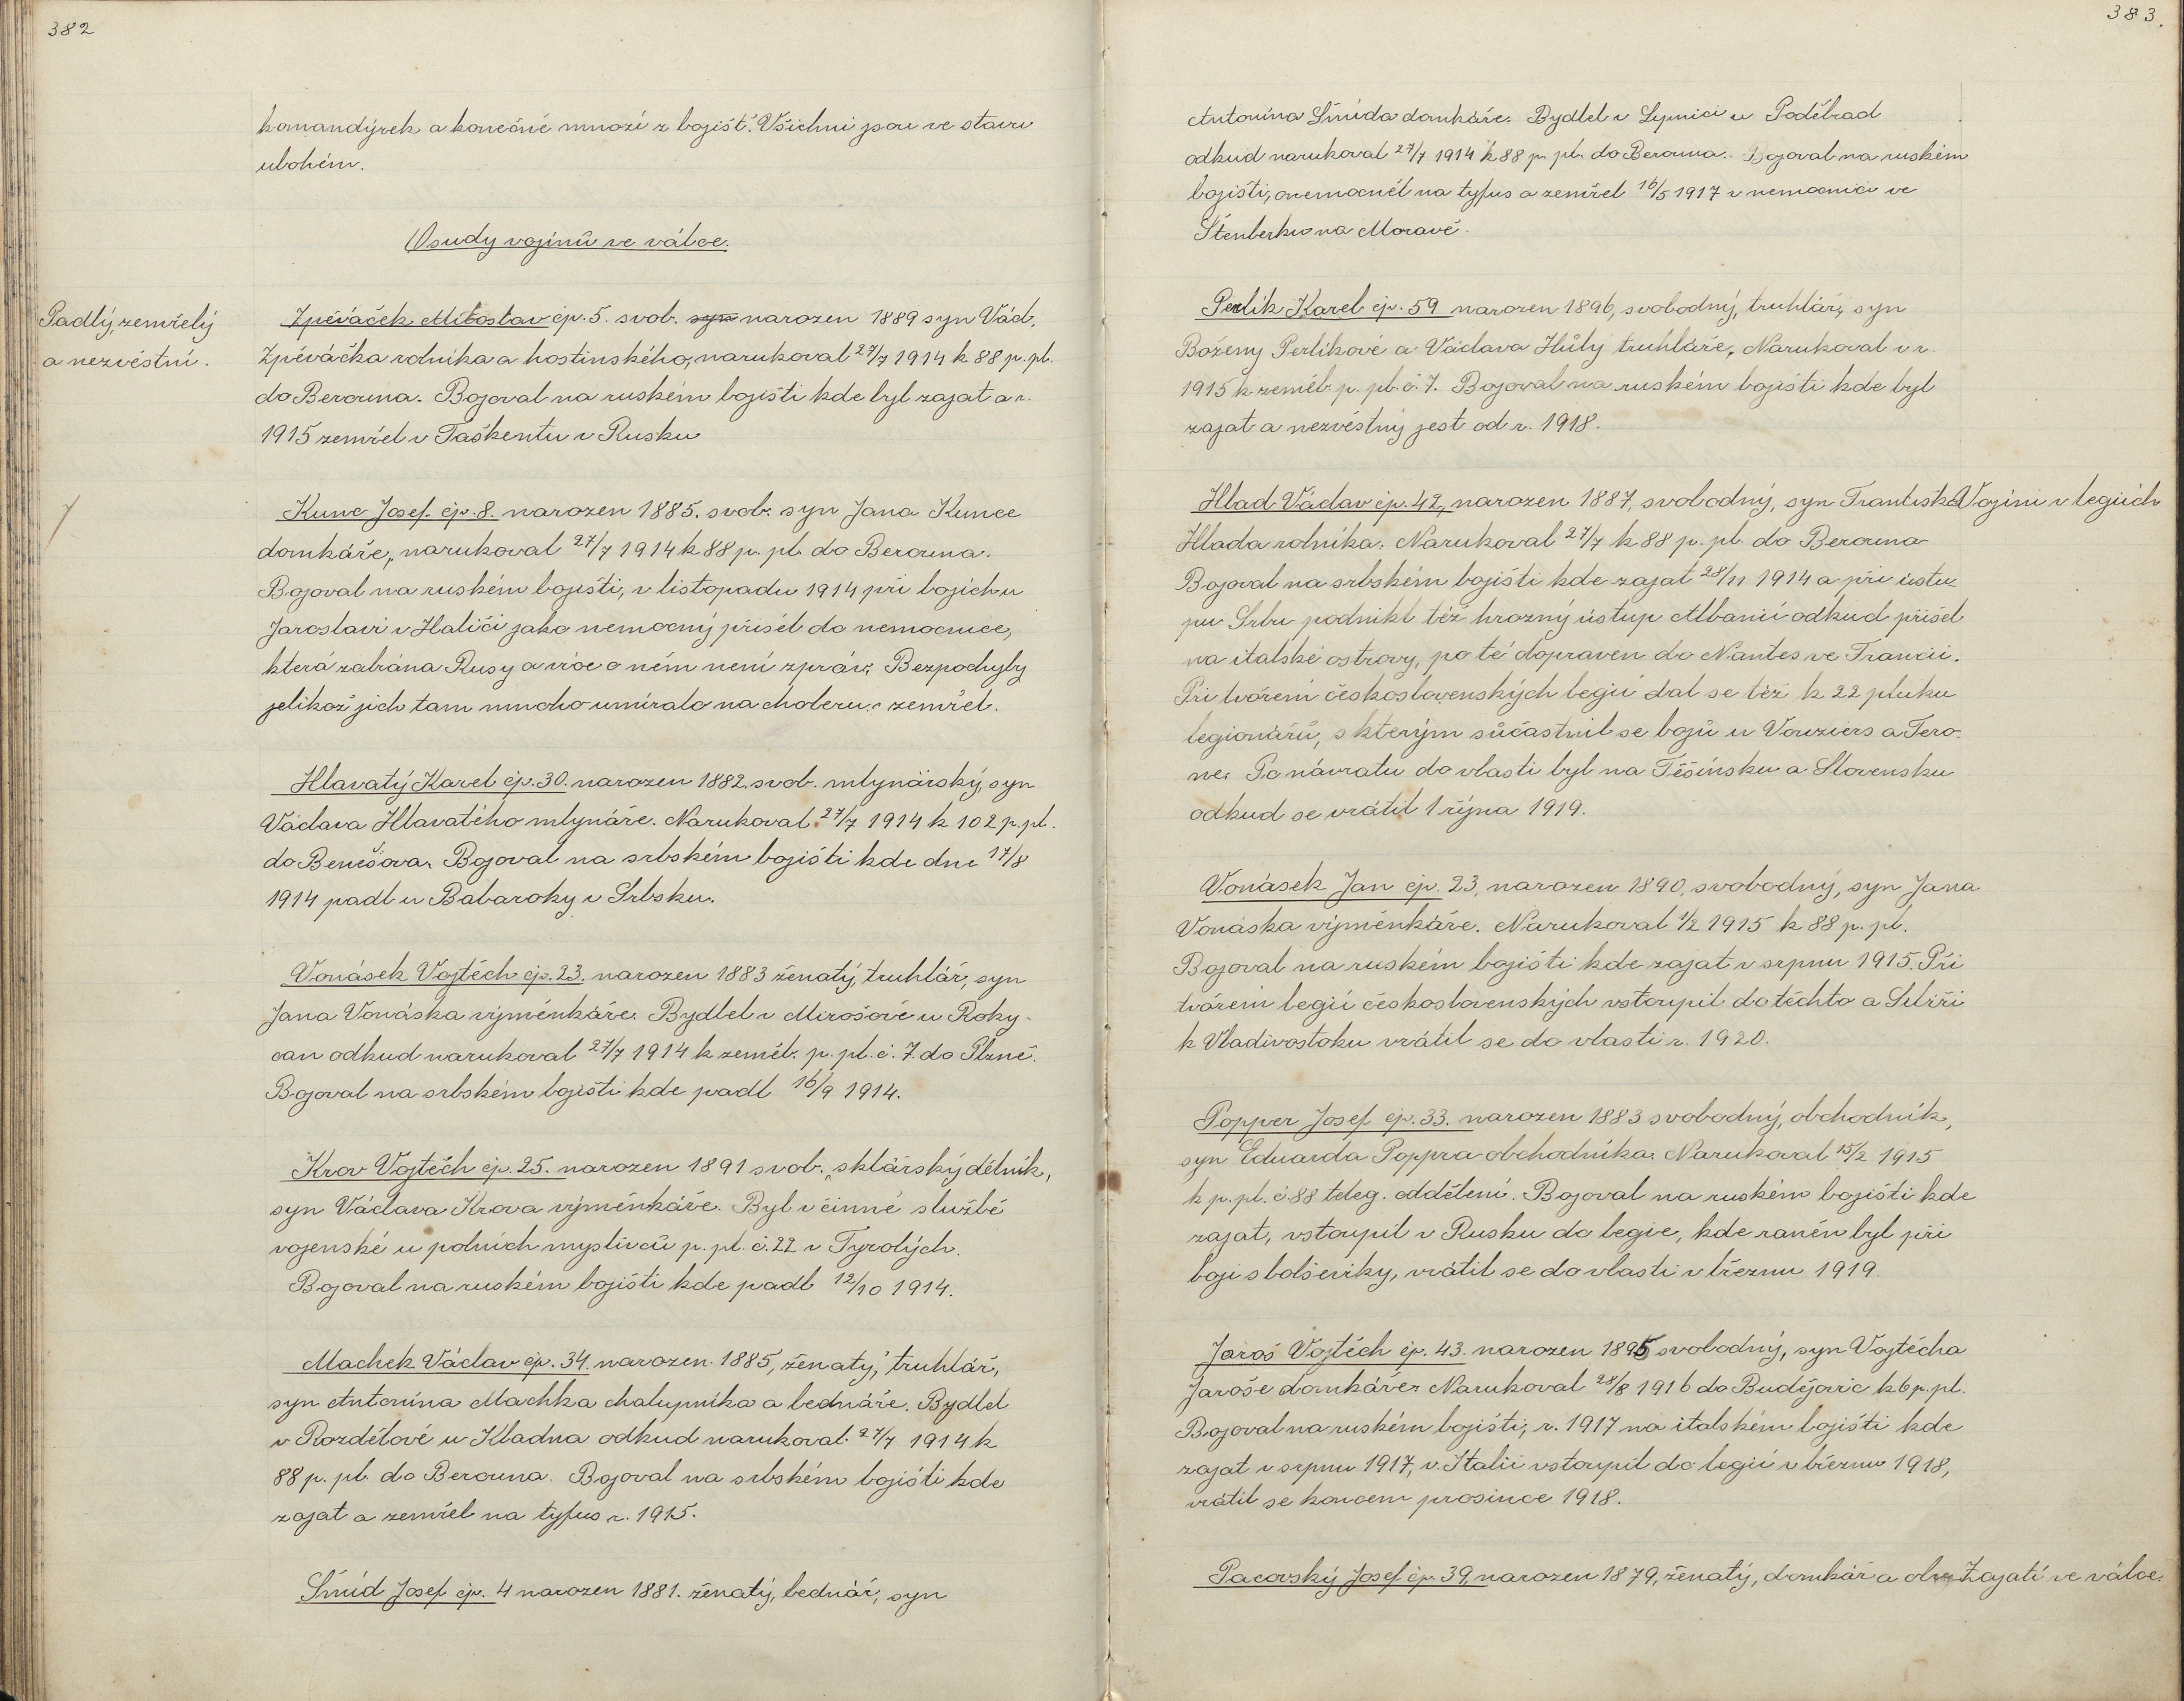 382
komandýrek a konečně mnozí z bojišť. Všichni jsou ve stavu
ubohém.
Osudy vojínů ve válce.
Padlý, zemřelý
a nezvěstní.
Zpěváček Miloslav čp. 5. svob. syn narozen 1889 syn Vác.
Zpěváčka rolníka a hostinského, narukoval 27/7 1914 k 88 p. pl.
do Berouna. Bojoval na ruském bojišti kde byl zajat a r.
1915 zemřel v Taškentu v Rusku
Kunc Josef čp. 8. narozen 1885. svob. syn Jana Kunce
domkáře, narukoval 27/7 1914 k 88 p. pl. do Berouna.
Bojoval na ruském bojišti, v listopadu 1914 při bojích u
Jaroslavi v Haliči jako nemocný přišel do nemocnice,
která zabrána Rusy a více o něm není zpráv. Bezpochyby
jelikož jich tam mnoho umíralo na choleru: zemřel.
Hlavatý Karel čp. 30. narozen 1882 svob. mlynářský, syn
Václava Hlavatého mlynáře. Narukoval 27/7 1914 k 102 p. pl.
do Benešova. Bojoval na srbském bojišti kde dne 17/8
1914 padl u Babaroky v Srbsku.
Vonásek Vojtěch čp. 23. narozen 1883 ženatý, truhlář, syn
Jana Vonáska výměnkáře. Bydlel v Mirošově u Roky-
can odkud narukoval 27/7 1914 k zeměb. p. pl. č. 7. do Plzně.
Bojoval na srbském bojišti kde padl 16/9 1914.
Krov Vojtěch čp. 25. narozen 1891 svob. sklářský dělník,
syn Václava Krova výměnkáře. Byl v činné službě
vojenské u polních myslivců p. pl. č. 22 v Tyrolých.
Bojoval na ruském bojišti kde padl 12/10 1914.
Machek Václav čp. 34. narozen 1885, ženatý, truhlář,
syn Antonína Machka chalupníka a bednáře. Bydlel
v Rozdělově u Kladna odkud narukoval 27/7 1914 k
88 p. pl. do Berouna. Bojoval na srbském bojišti kde
zajat a zemřel na tyfus r. 1915.
Šmíd Josef čp. 4 narozen 1881. ženatý, bednář, syn
383.
Antonína Šmída domkáře. Bydlel v Lipnici u Poděbrad
odkud narukoval 27/7 1914 k 88 p. pl. do Berouna. Bojoval na ruském
bojišti, onemocněl na tyfus a zemřel 16/5 1917 v nemocnici ve
Štenberku na Moravě.
Perlík Karel čp. 59 narozen 1896, svobodný, truhlář, syn
Boženy Perlíkové a Václava Hůly truhláře. Narukoval v r.
1915 k zeměb. p. pl. č. 7. Bojoval na ruském bojišti kde byl
zajat a nezvěstný jest od r. 1918.
Hlad Václav čp. 42, narozen 1887, svobodný, syn Františka
Vojíni v legiích
Hlada rolníka. Narukoval 27/7 k 88 p. pl. do Berouna
Bojoval na srbském bojišti kde zajat 28/11 1914 a při ústu-
pu Srbů podnikl též hrozný ústup Albanií odkud přišel
na italské ostrovy, po té dopraven do Nantes ve Francii.
Při tvoření československých legií dal se též k 22 pluku
legionářů, s kterým súčastnil se bojů u Vouziers a Tero-
ne. Po návratu do vlasti byl na Těšínsku a Slovensku
odkud se vrátil 1 října 1919.
Vonásek Jan čp. 23, narozen 1890, svobodný, syn Jana
Vonáska výměnkáře. Narukoval 1/2 1915 k 88 p. pl.
Bojoval na ruském bojišti kde zajat v srpnu 1915. Při
tvoření legií československých vstoupil do těchto a Sibiří
k Vladivostoku vrátil se do vlasti r. 1920.
Popper Josef čp. 33. narozen 1883 svobodný, obchodník,
syn Eduarda Poppra obchodníka. Narukoval 15/2 1915
k p. pl. č. 88 teleg. oddělení. Bojoval na ruském bojišti kde
zajat, vstoupil v Rusku do legie, kde raněn byl při
boji s bolševiky, vrátil se do vlasti v březnu 1919.
Jaroš Vojtěch čp. 43. narozen 1895 svobodný, syn Vojtěcha
Jaroše domkáře. Narukoval 28/8 1916 do Budějovic k 6 p. pl.
Bojoval na ruském bojišti, r. 1917 na italském bojišti kde
zajat v srpnu 1917, v Italii vstoupil do legií v březnu 1918,
vrátil se koncem prosince 1918.
Pacovský Josef čp. 39, narozen 1879, ženatý, domkář a
Zajatí ve válce.